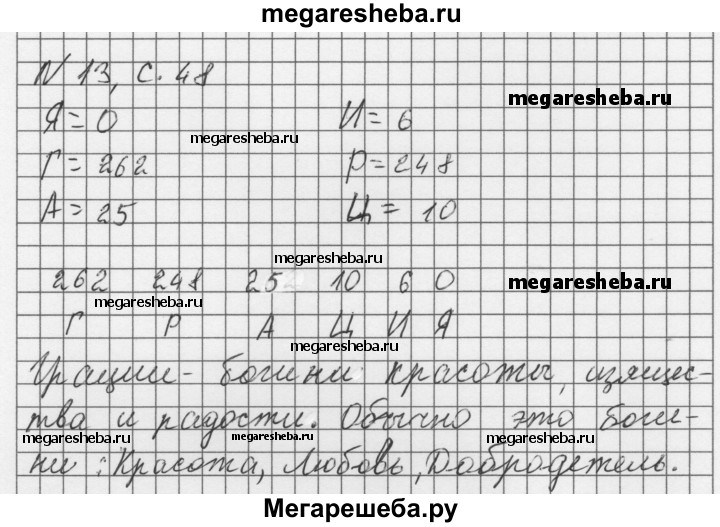 megaresheba.ru
N 13, с. 48
megaresheba.ru
Я = 0 И = 6
megaresheba.ru
Г = 262 Р = 248
А = 25 Ц = 10
megaresheba.ru
262 248 25 10 6 0
megaresheba.ru
megaresheba.ru
Г Р А Ц И Я
megaresheba.ru
Грации - богини красоты, изящес-
тва и радости. Обычно это боги-
megaresheba.ru megaresheba.ru megaresheba.ru
ни: Красота, Любовь, Добродетель.
Мегарешеба.ру